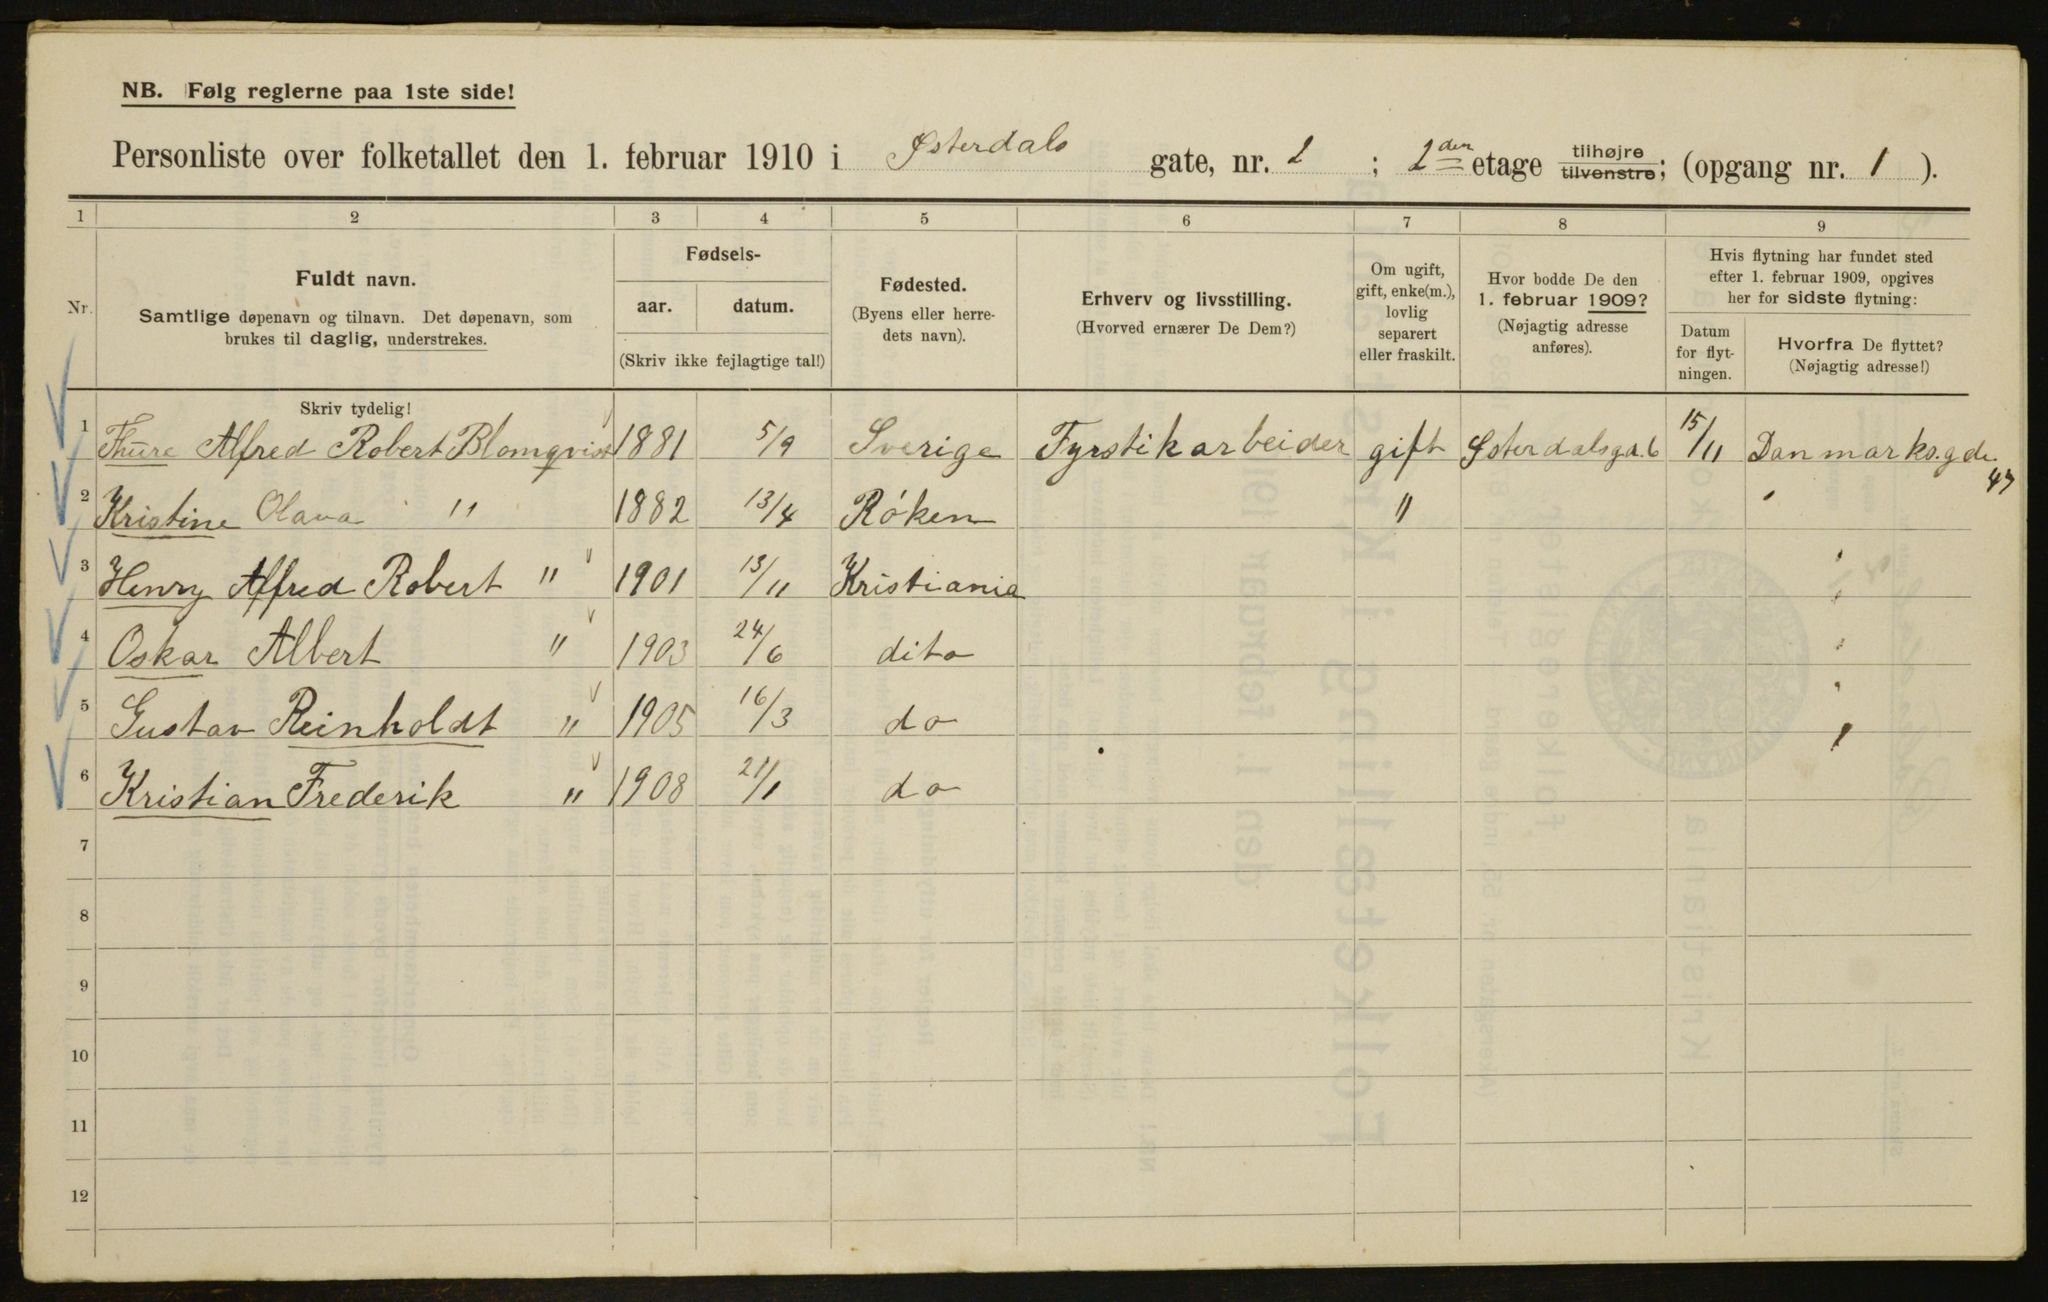 NB. Følg reglerne paa 1ste side!
Personliste over folketallet den 1. februar 1910 i Østerdals gate, nr. 2 ; 2den etage tilhøjre tilvenstre; (opgang nr. 1 ).
1 2 3 4 5 6 7 8 9
Nr.
Fuldt navn.
Samtlige døpenavn og tilnavn. Det døpenavn, som
brukes til daglig, understrekes.
Fødsels-
aar. datum.
(Skriv ikke fejlagtige tal!)
Fødested.
(Byens eller herre-
dets navn).
Erhverv og livsstilling.
(Hvorved ernærer De Dem?)
Om ugift,
gift, enke(m.),
lovlig
separert
eller fraskilt.
Hvor bodde De den
1. februar 1909?
(Nøjagtig adresse
anføres).
Hvis flytning har fundet sted
efter 1. februar 1909, opgives
her for sidste flytning:
Datum
for flyt-
ningen.
Hvorfra De flyttet?
(Nøjagtig adresse!)
Skriv tydelig!
1 Thure Alfred Robert Blomqvist 1881 5/9 Sverige Fyrstikarbeider gift Østerdalsgd. 6 15/11 Danmarks.gde. 47
2 Kristine Olava " 1882 13/4 Røken "
3 Henry Alfred Robert " 1901 13/11 Kristiania
4 Oskar Albert " 1903 24/6 dito
5 Gustav Reinholdt " 1905 16/3 do
6 Kristian Frederik " 1908 21/1 do
7
8
9
10
11
12